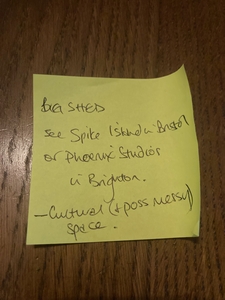 BIG SHED
see Spike Island in Bristol
or Phoenix Studios
in Brighton.
- Cultural (+ poss
space.